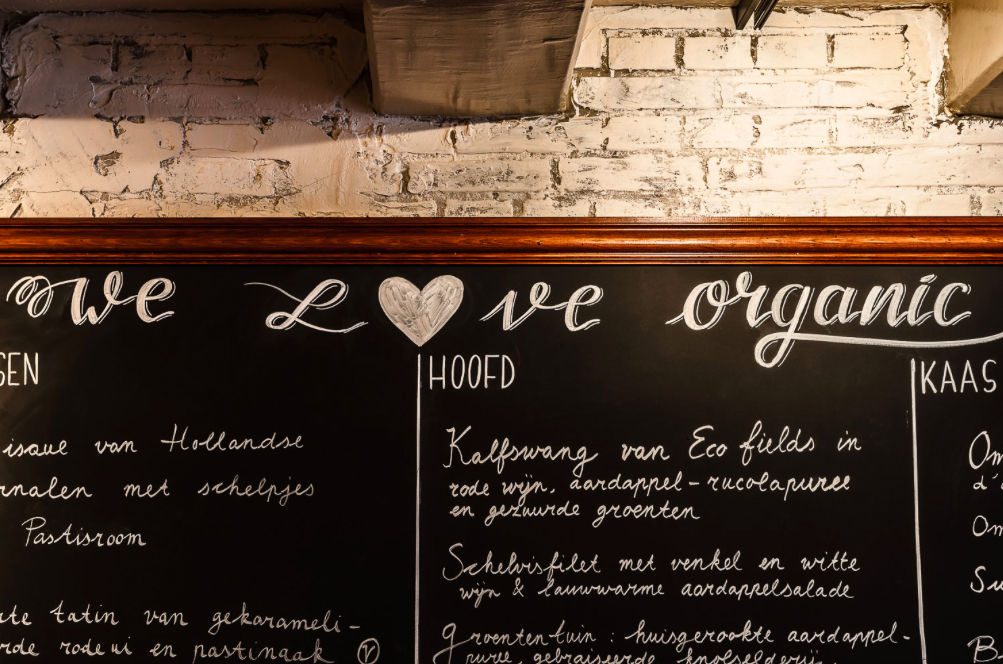 we L♥ve organic
SEN
isque van Hollandse
rnalen met schelpjes
Pastisroom
rte tatin van gekarameli-
rde rode ui en pastinaak V
HOOFD
Kalfswang van Eco fields in
rode wijn, aardappel-rucolapuree
en gezuurde groenten
Schelvisfilet met venkel en witte
wijn & lauwwarme aardappelsalade
Groententuin : huisgerookte aardappel-
puree, gebraiseerde knolselderij,
KAAS
Om
d'
Om
Su
B